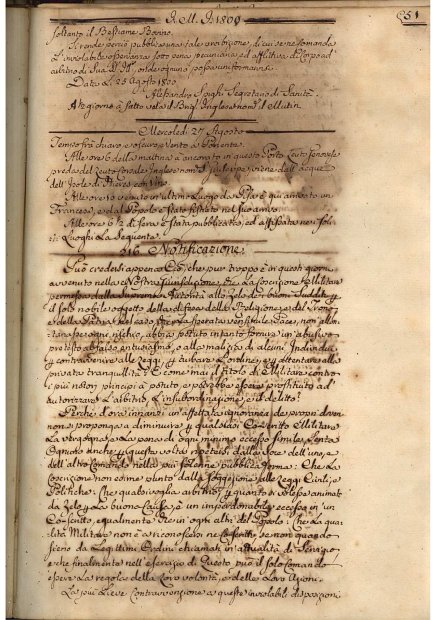 A. M. A. 1800
251
soltanto il Bestiame Bonno.
Si rende perciò pubblica una tale proibizione, di cui se ne comanda
L'inviolabile osservanza sotto pena pecuniaria, ed afflittiva di Corpo ad
arbitrio di Sua onde ognuno possa uniformarsi.
Data Li 25 Agosto 1800
Alessandro Segretario di Sanità.
A giorno à fatto vela il Brig. Inglese nom. il Mutin
Mercoledì 27 Agosto
Tempo frà chiaro e oscuro, e vento a Ponente
Alle ore 6 della mattina à ancorato in questo Porto Leuto Genovese
preda del Leuto Corsale Inglese nom. S. Giuseppe, viene dall'acque
dell'Isole di Hieres con Vino.
Alle ore 10 venuto in ultimo Luogo da Pisa è quì arrivato un
Francese, e dal Popolo è stato fischiato nel suo arrivo.
Alle ore 6 1/2 di sera è stata pubblicata, ed affissata nei soli-
ti Luoghi La Seguente
516 Notificazione
Può credersi appena Ciò, che pur troppo è in questi giorni
avvenuto nella Nostra Giurisdizione, che La Coscrizione Militare
permessa dalla Suprema Autorità allo Zelo dei buoni Sudditi, p.
il solo nobile oggetto della difesa della Religione, e del Trono,
e della Patria, nel caso che la sperata venisse Pace, non allon-
tanasse ogni rischio, abbia potuto intanto fornire un abusivo
pretesto al falso entusiasmo, o alla malizia di alcuni Individui
p. contravvenire alle Leggi, p. turbare L'ordine, e p. attentare alla
privata tranquillità. E come mai il titolo di Militare contro
i più noti principj à potuto, e potrebbe essere prostituito ad
autorizzare L'arbitrio, L'insubordinazione, e il delitto?
Perchè d'ora innanzi un affettata ignoranza dei propri doveri
non si proponga a diminuire p. qualsisia Coscritto Militare
La vergogna, e La pena di ogni minimo eccesso simile, senta
Ognuno anche p. questa volta ripetersi dalla voce dell'uno, e
dell'altro Comando nella più solenne pubblica forma: Che La
Coscrizione non esime punto dalla soggezione alle Leggi Civili, e
Politiche: Che qualsivoglia arbitrio, p. quanto si volesse animato
da Zelo p. La buona Causa, è un imperdonabile eccesso in un
Coscritto, egualmente che in ogni altri del Popolo: Che La qua-
lità Militare non è riconosciuta nei Coscritti, se non quando
sieno da Legittimi Ordini chiamati in attualità di Servizio,
e che finalmente nell'esercizio di Questo può il solo Comando
essere La regola della Loro volontà, e delle Loro Azioni.
La più Lieve Contravvenzione a queste inviolabili disposizioni